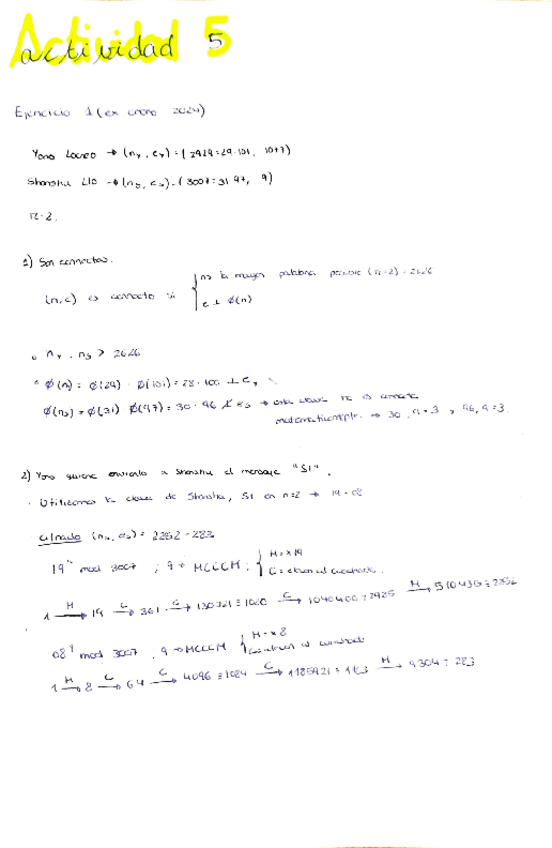 Actividad 5
actividad 5
Ejercicio 1 (ex enero 2024)
Yono Loreo → (n_y, e_y) = (2929 = 29·101, 1017)
(n_s, e_s) = (3007 = 31·97, 9)
n=2.
1) Son correctas.
(n, e) es correcto si { n > la mayor palabra posible (n=2) = 2626
e ⊥ ϕ(n)
• n_y, n_s > 2626
• ϕ(n) = ϕ(29) · ϕ(101) = 28·100 ⊥ e_y
ϕ(n_s) = ϕ(31) ϕ(97) = 30·96 ⊥̸ e_s → esta clave no es correcta
matemáticamente. → 30, 9 = 3, 96, 9 = 3.
2) Yono quiere enviarle a el mensaje "SI".
· Utilizamos la clave de SI en n=2 → 19-08
cifrado (n_s, e_s) = 2252-283
19⁹ mod 3007 ; 9 → MCCCM ; { M = x 19
C = elevar al cuadrado.
1 —M→ 19 —C→ 361 —C→ 130321 ≡ 1020 —C→ 1040400 ≡ 2985 —M→
08⁹ mod 3007, 9 → MCCCM { M = x 8
C = elevar al cuadrado
1 —M→ 8 —C→ 64 —C→ 4096 ≡ 1089 —C→ 1185921 ≡ 1163 —M→ 9304 ≡ 283